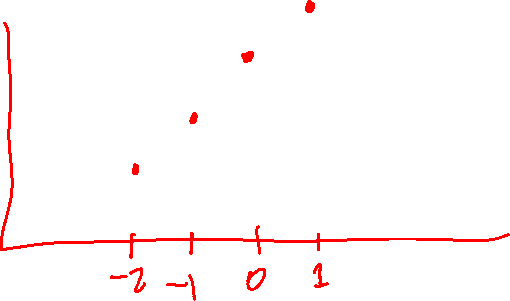 -2 -1 0 1